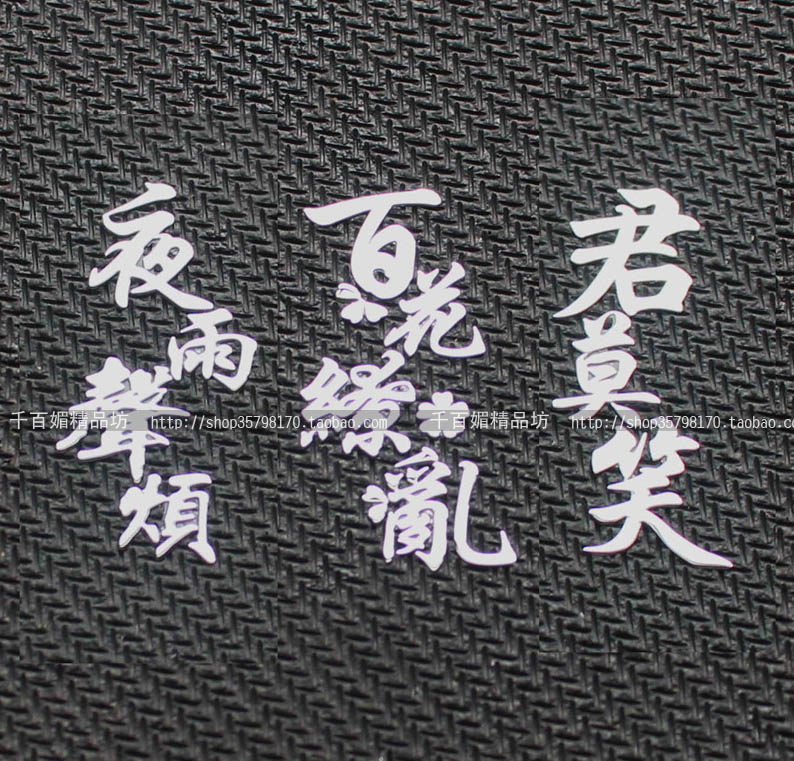 夜雨聲煩
百花繚亂
君莫笑
千百媚精品坊 http://shop35798170.taobao.com/ 千百媚精品坊 http://shop35798170.taobao.com/